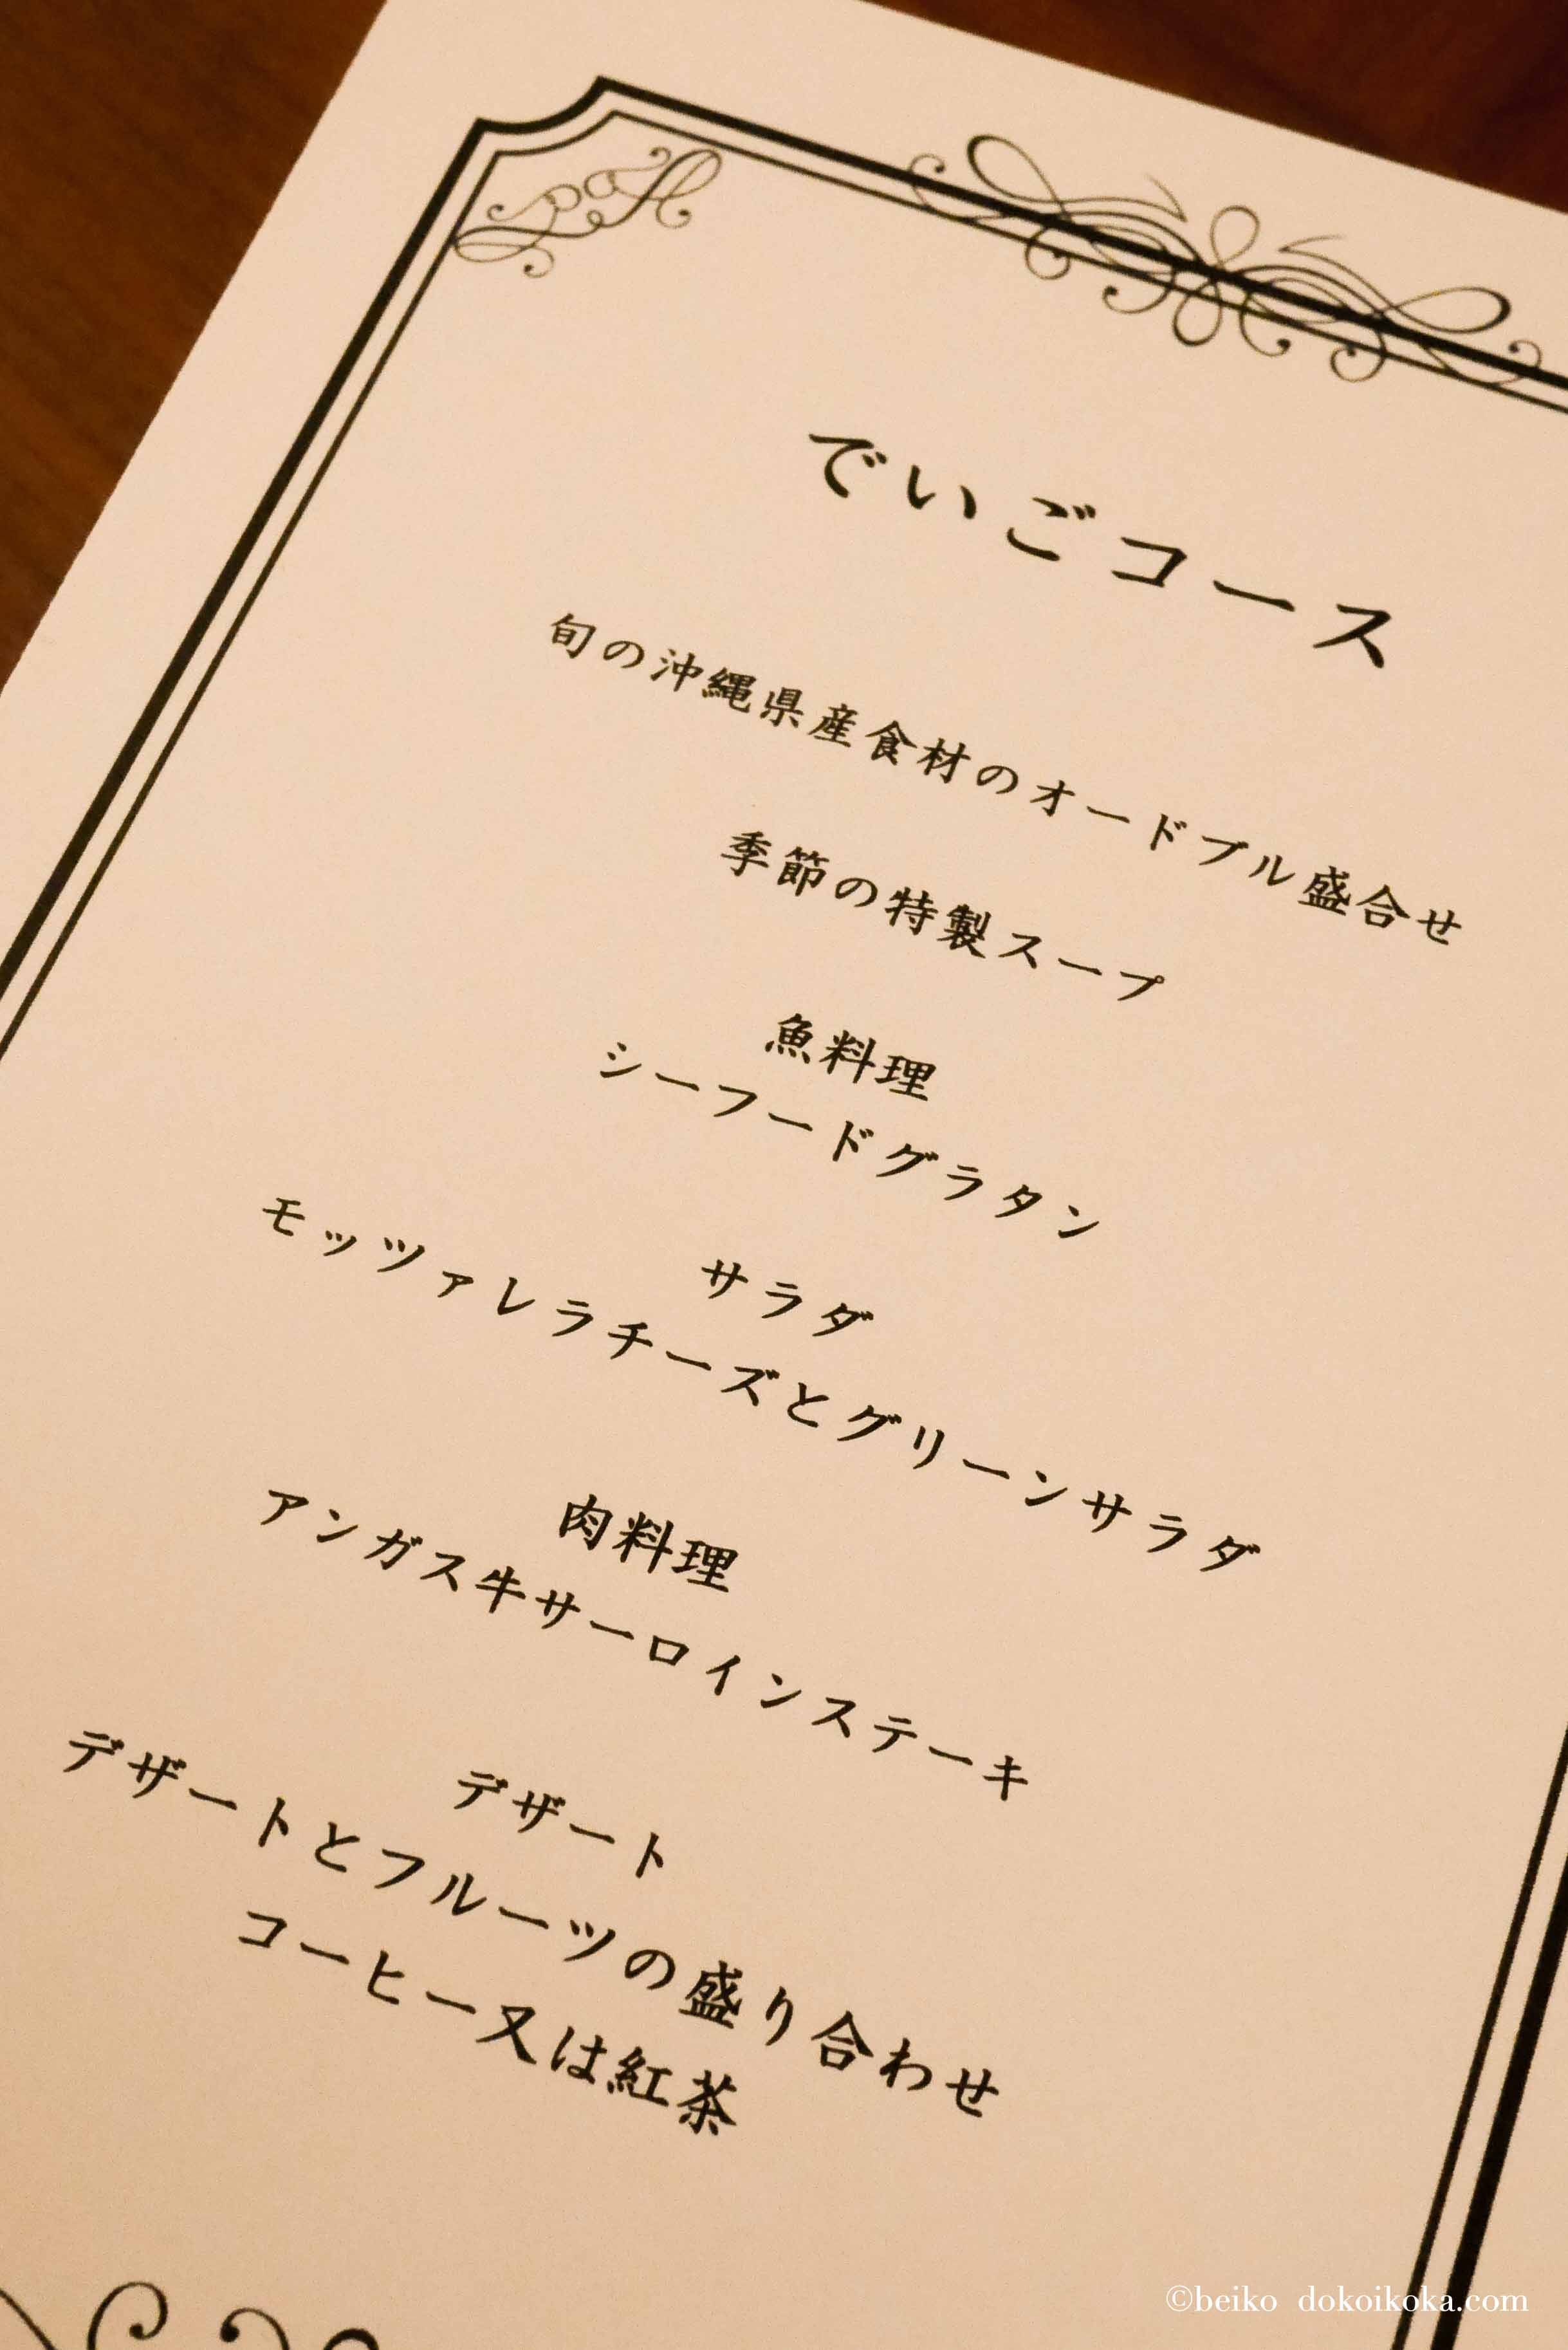 でいごコース
旬の沖縄県産食材のオードブル盛合せ
季節の特製スープ
魚料理
シーフードグラタン
サラダ
モッツァレラチーズとグリーンサラダ
肉料理
アンガス牛サーロインステーキ
デザート
デザートとフルーツの盛り合わせ
コーヒー又は紅茶
©beiko dokoikoka.com